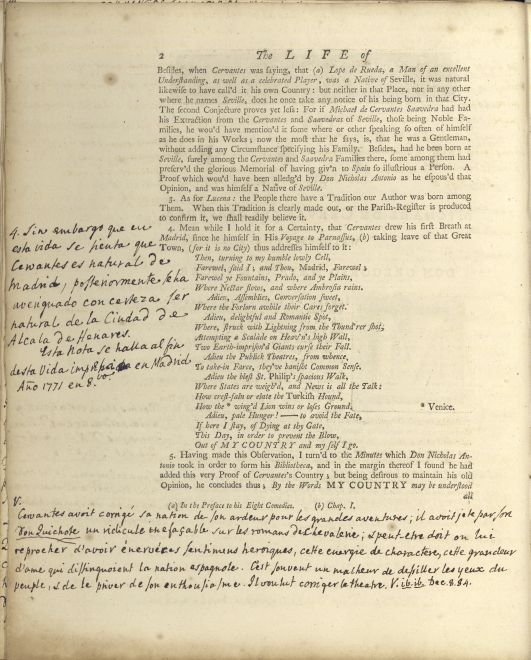 2 The LIFE of
Beſides, when Cervantes was ſaying, that (a) Lope de Rueda, a Man of an excellent
Underſtanding, as well as a celebrated Player, was a Native of Seville, it was natural
likewiſe to have call'd it his own Country: but neither in that Place, nor in any other
where he names Seville, does he once take any notice of his being born in that City.
The ſecond Conjecture proves yet leſs: For if Michael de Cervantes Saavedra had had
his Extraction from the Cervantes and Saavedras of Seville, thoſe being Noble Fa-
milies, he wou'd have mention'd it ſome where or other ſpeaking ſo often of himſelf
as he does in his Works; now the moſt that he ſays, is, that he was a Gentleman,
without adding any Circumſtance ſpecifying his Family. Beſides, had he been born at
Seville, ſurely among the Cervantes and Saavedra Families there, ſome among them had
preſerv'd the glorious Memorial of having giv'n to Spain ſo illuſtrious a Perſon. A
Proof which wou'd have been alledg'd by Don Nicholas Antonio as he eſpous'd that
Opinion, and was himſelf a Native of Seville.
3. As for Lucena: the People there have a Tradition our Author was born among
Them. When this Tradition is clearly made out, or the Pariſh-Regiſter is produced
to confirm it, we ſhall readily believe it.
4. Mean while I hold it for a Certainty, that Cervantes drew his firſt Breath at
Madrid, ſince he himſelf in His Voyage to Parnaſſus, (b) taking leave of that Great
Town, (for it is no City) thus addreſſes himſelf to it:
Then, turning to my humble lowly Cell,
Farewel, ſaid I; and Thou, Madrid, Farewel;
Farewel ye Fountains, Prado, and ye Plains,
Where Nectar flows, and where Ambroſia rains.
Adieu, Aſſemblies, Converſation ſweet,
Where the Forlorn awhile their Cares forget.
Adieu, delightful and Romantic Spot,
Where, ſtruck with Lightning from the Thund'rer ſhot,
Attempting a Scalade on Heav'n's high Wall,
Two Earth-impriſon'd Giants curſe their Fall.
Adieu the Publick Theatres, from whence,
To take-in Farce, they've baniſht Common Senſe.
Adieu the bleſt St. Philip's ſpacious Walk,
Where States are weigh'd, and News is all the Talk:
How creſt-faln or elate the Turkiſh Hound,
How the * wing'd Lion wins or loſes Ground.
* Venice.
Adieu, pale Hunger!—to avoid the Fate,
If here I ſtay, of Dying at thy Gate,
This Day, in order to prevent the Blow,
Out of MY COUNTRY and my ſelf I go.
5. Having made this Obſervation, I turn'd to the Minutes which Don Nicholas An-
tonio took in order to form his Bibliotheca, and in the margin thereof I found he had
added this very Proof of Cervantes's Country; but being deſirous to maintain his old
Opinion, he concludes thus; By the Words MY COUNTRY may be underſtood
all
(a) In the Preface to his Eight Comedies. (b) Chap. I.
4. Sin embargo que en
esta vida se sienta que
Cervantes es natural de
Madrid, posteriormente se ha
averiguado con certeza ser
natural de la Ciudad de
Alcala de Henares.
Esta Nota se halla al fin
desta Vida impresa en Madrid
Año 1771 en 8.vo
V.
Cervantes avoit corrigé sa nation de son ardeur pour les grandes aventures; il avoit jeté par son
Don Quichote un ridicule inefaçable sur les romans de Chevalerie; & peut-etre doit on lui
reprocher d'avoir énervé ces sentimens heroiques, cette energie de charactere, cette grandeur
d'ame qui distinguoient la nation espagnole. C'est souvent un malheur de desiller les yeux du
peuple, & de le priver de son enthousiasme. Il voulut corriger le theatre. V. ib. ib. Dec. 8.84.